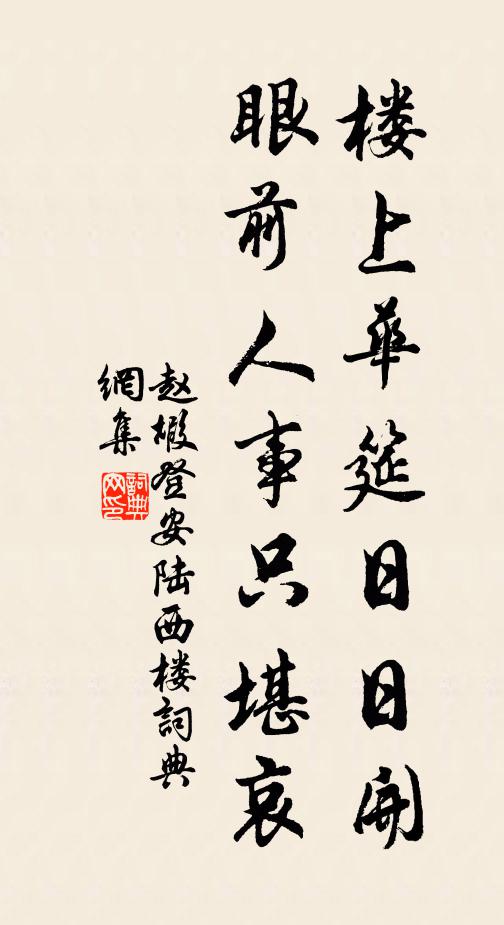 楼上华筵日日開
眼前人事只堪哀
赵嘏登安陆西楼詞典
網集
詞典
网印